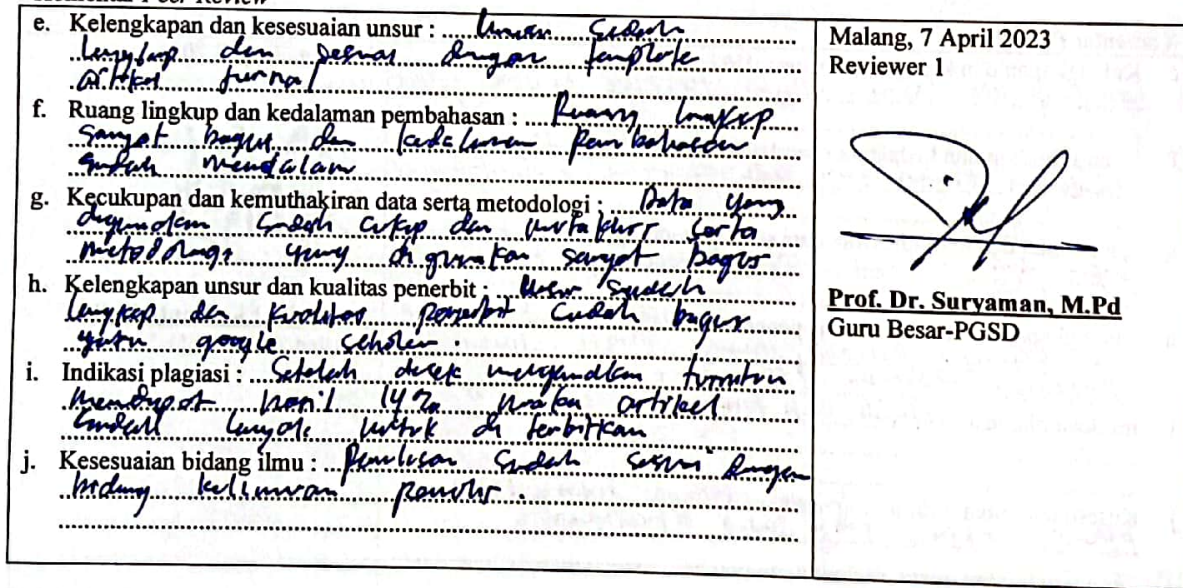 Peer Review
e. Kelengkapan dan kesesuaian unsur : Unsur Sudah
lengkap dan sesuai dengan template
Artikel jurnal
f. Ruang lingkup dan kedalaman pembahasan : Ruang lingkup
sangat bagus dan kedalaman pembahasan
sudah mendalam
g. Kecukupan dan kemuthakiran data serta metodologi : Data yang
digunakan sudah cukup dan mutakhir serta
metodologi yang di gunakan sangat bagus
h. Kelengkapan unsur dan kualitas penerbit : Unsur sudah
lengkap dan kualitas penerbit sudah bagus
yaitu google scholar.
i. Indikasi plagiasi : Setelah dicek menggunakan turnitin
mendapat hasil 14% maka artikel
sudah layak untuk di terbitkan
j. Kesesuaian bidang ilmu : Penulisan sudah sesuai dengan
bidang keilmuan penulis.
Malang, 7 April 2023
Reviewer 1
Prof. Dr. Suryaman, M.Pd
Guru Besar-PGSD